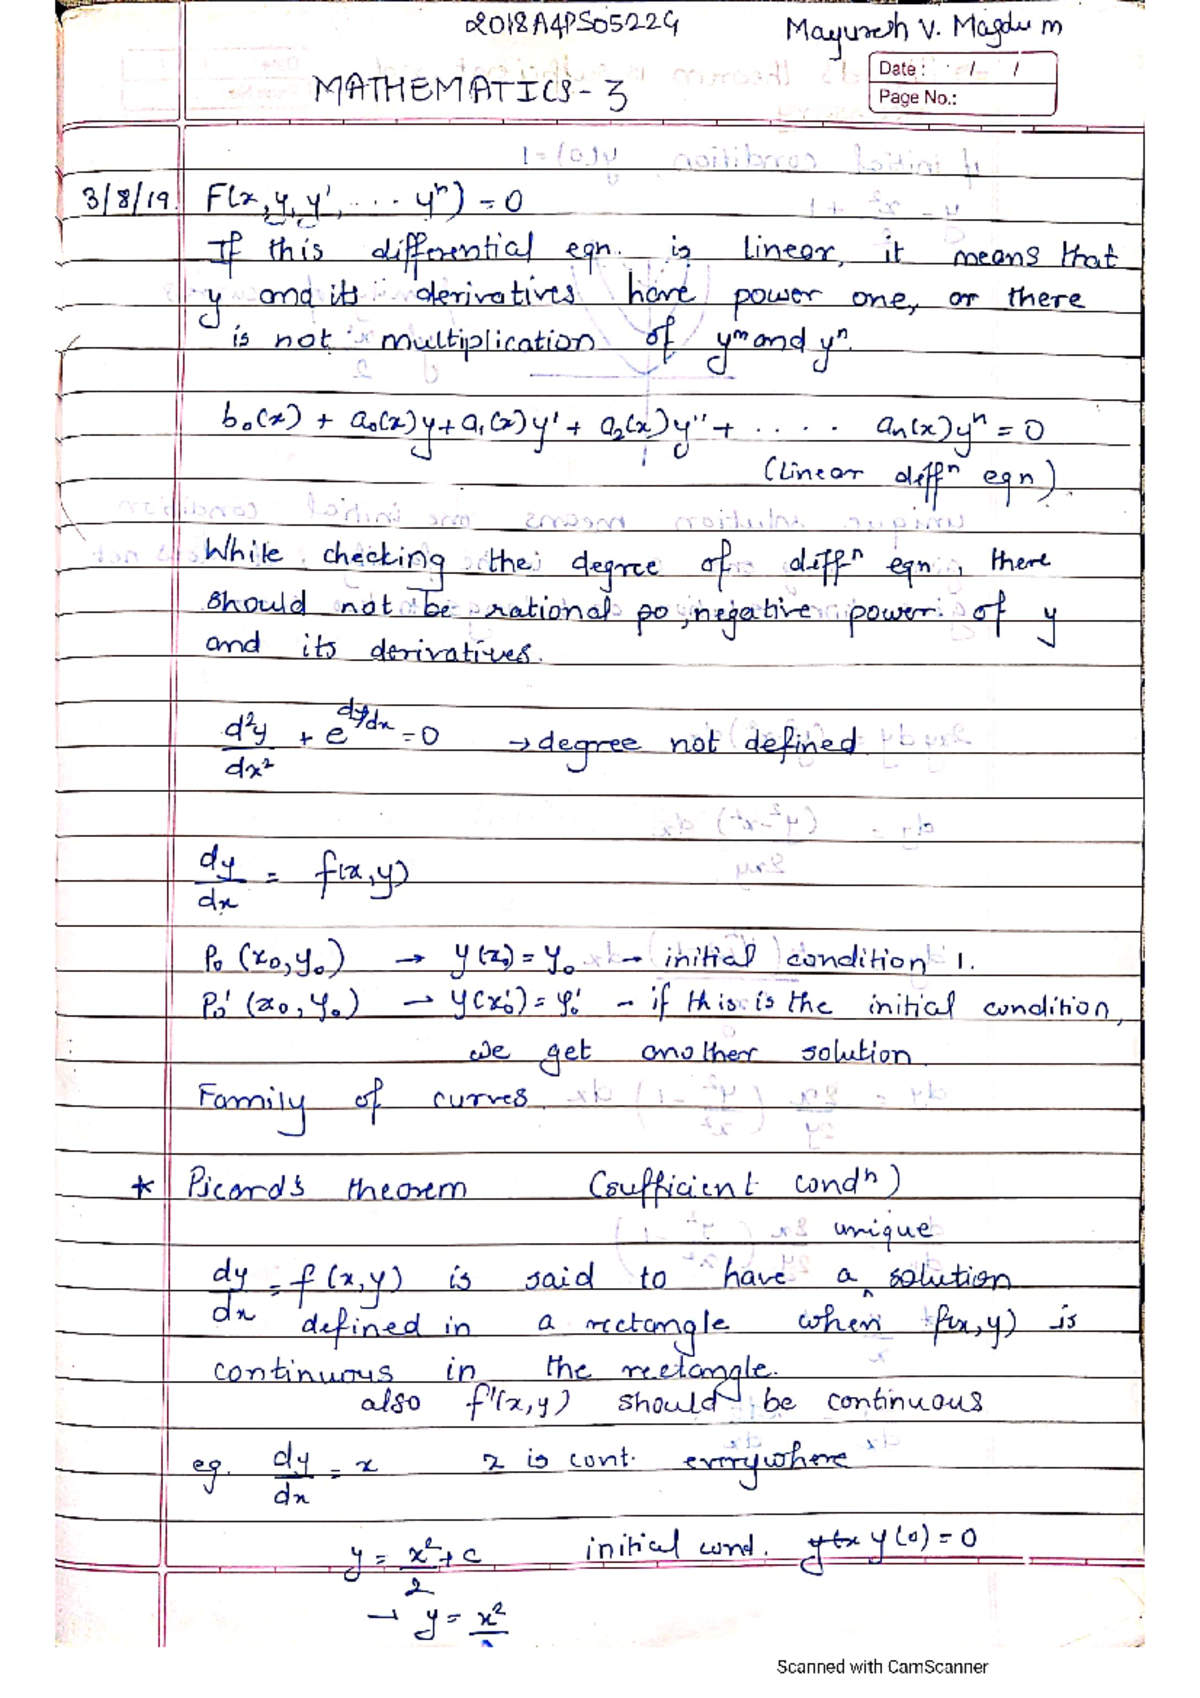 2018A4PS0522G Mayuresh V. Magdum
MATHEMATICS-3
Date : / /
Page No.:
3/8/19. F(x, y, y', .... yⁿ) = 0
If this differential eqn. is linear, it means that
y and its derivatives have power one, or there
is not multiplication of yᵐ and yⁿ.
b₀(x) + a₀(x)y + a₁(x)y' + a₂(x)y'' + ..... aₙ(x)yⁿ = 0
(Linear diffⁿ eqn).
While checking the degree of diffⁿ eqn, there
should not be rational po, negative power of y
and its derivatives.
d²y/dx² + e^(dy/dx) = 0 → degree not defined
dy/dx = f(x,y)
P₀ (x₀, y₀) → y(x₀) = y₀ → initial condition 1.
P₀' (x₀, y₀) → y(x₀') = y₀' - if this is the initial condition,
we get another solution
Family of curves
* Picard's theorem (sufficient condⁿ)
unique
dy/dx = f(x,y) is said to have a ^ solution
defined in a rectangle when f(x,y) is
continuous in the rectangle.
also f'(x,y) should be continuous
eg. dy/dx = x x is cont. everywhere
y = x²/2 + c initial cond. y(0) = 0
→ y = x²/2
Scanned with CamScanner